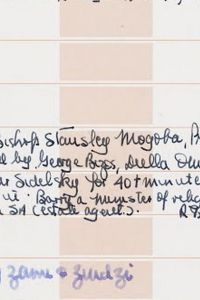 Bishop Stanley Mogoba, P
d by George Bizos, Dulla Om
Sidelsky for 40+ minute
. Barry a minister of relig
n SA (estate agent). R
Zami & Zindzi